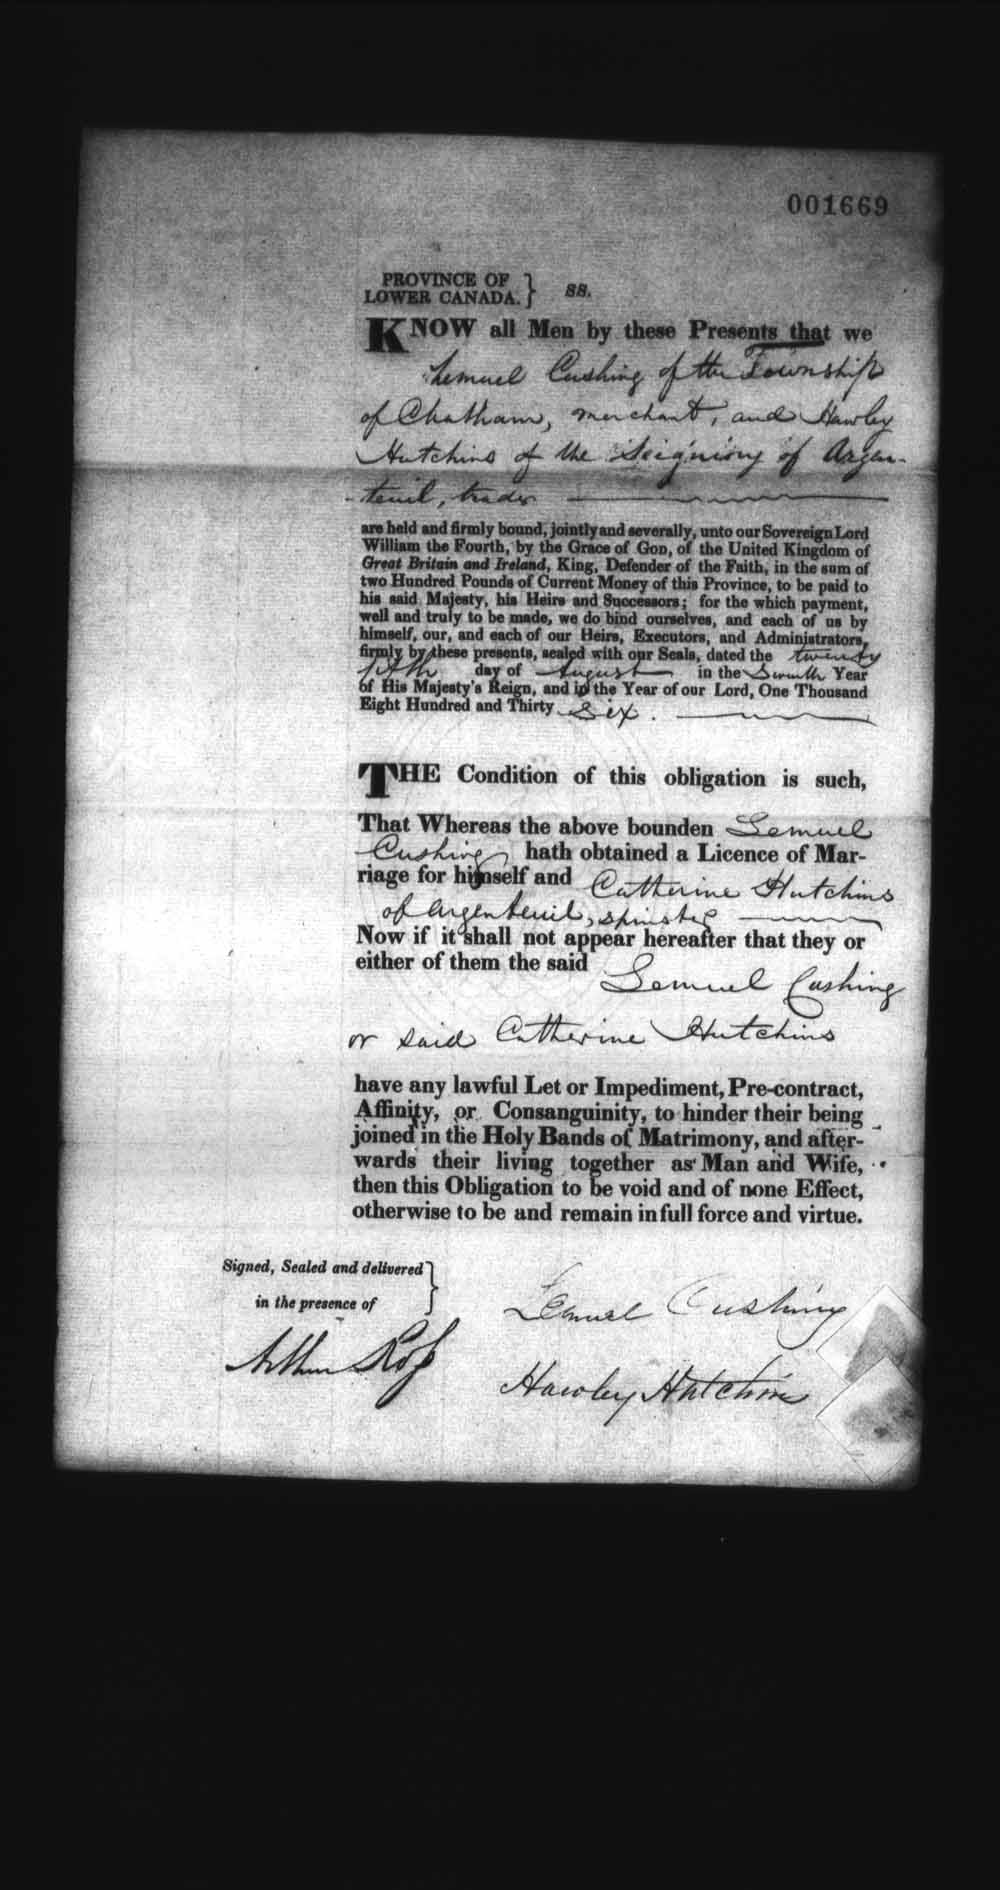 001669
PROVINCE OF
LOWER CANADA. } SS.
KNOW all Men by these Presents that we
Lemuel Cushing of the Township
of Chatham, merchant, and Hawley
Hutchins of the Seigniory of Argen-
-teuil, trader
are held and firmly bound, jointly and severally, unto our Sovereign Lord
William the Fourth, by the Grace of GOD, of the United Kingdom of
Great Britain and Ireland, King, Defender of the Faith, in the sum of
two Hundred Pounds of Current Money of this Province, to be paid to
his said Majesty, his Heirs and Successors; for the which payment,
well and truly to be made, we do bind ourselves, and each of us by
himself, our, and each of our Heirs, Executors, and Administrators,
firmly by these presents, sealed with our Seals, dated the twenty
fifth day of August in the Seventh Year
of His Majesty's Reign, and in the Year of our Lord, One Thousand
Eight Hundred and Thirty Six.
THE Condition of this obligation is such,
That Whereas the above bounden Lemuel
Cushing hath obtained a Licence of Mar-
riage for himself and Catherine Hutchins
of Argenteuil, spinster
Now if it shall not appear hereafter that they or
either of them the said Lemuel Cushing
or said Catherine Hutchins
have any lawful Let or Impediment, Pre-contract,
Affinity, or Consanguinity, to hinder their being
joined in the Holy Bands of Matrimony, and after-
wards their living together as Man and Wife,
then this Obligation to be void and of none Effect,
otherwise to be and remain in full force and virtue.
Signed, Sealed and delivered }
in the presence of
Lemuel Cushing
Arthur Ross
Hawley Hutchins